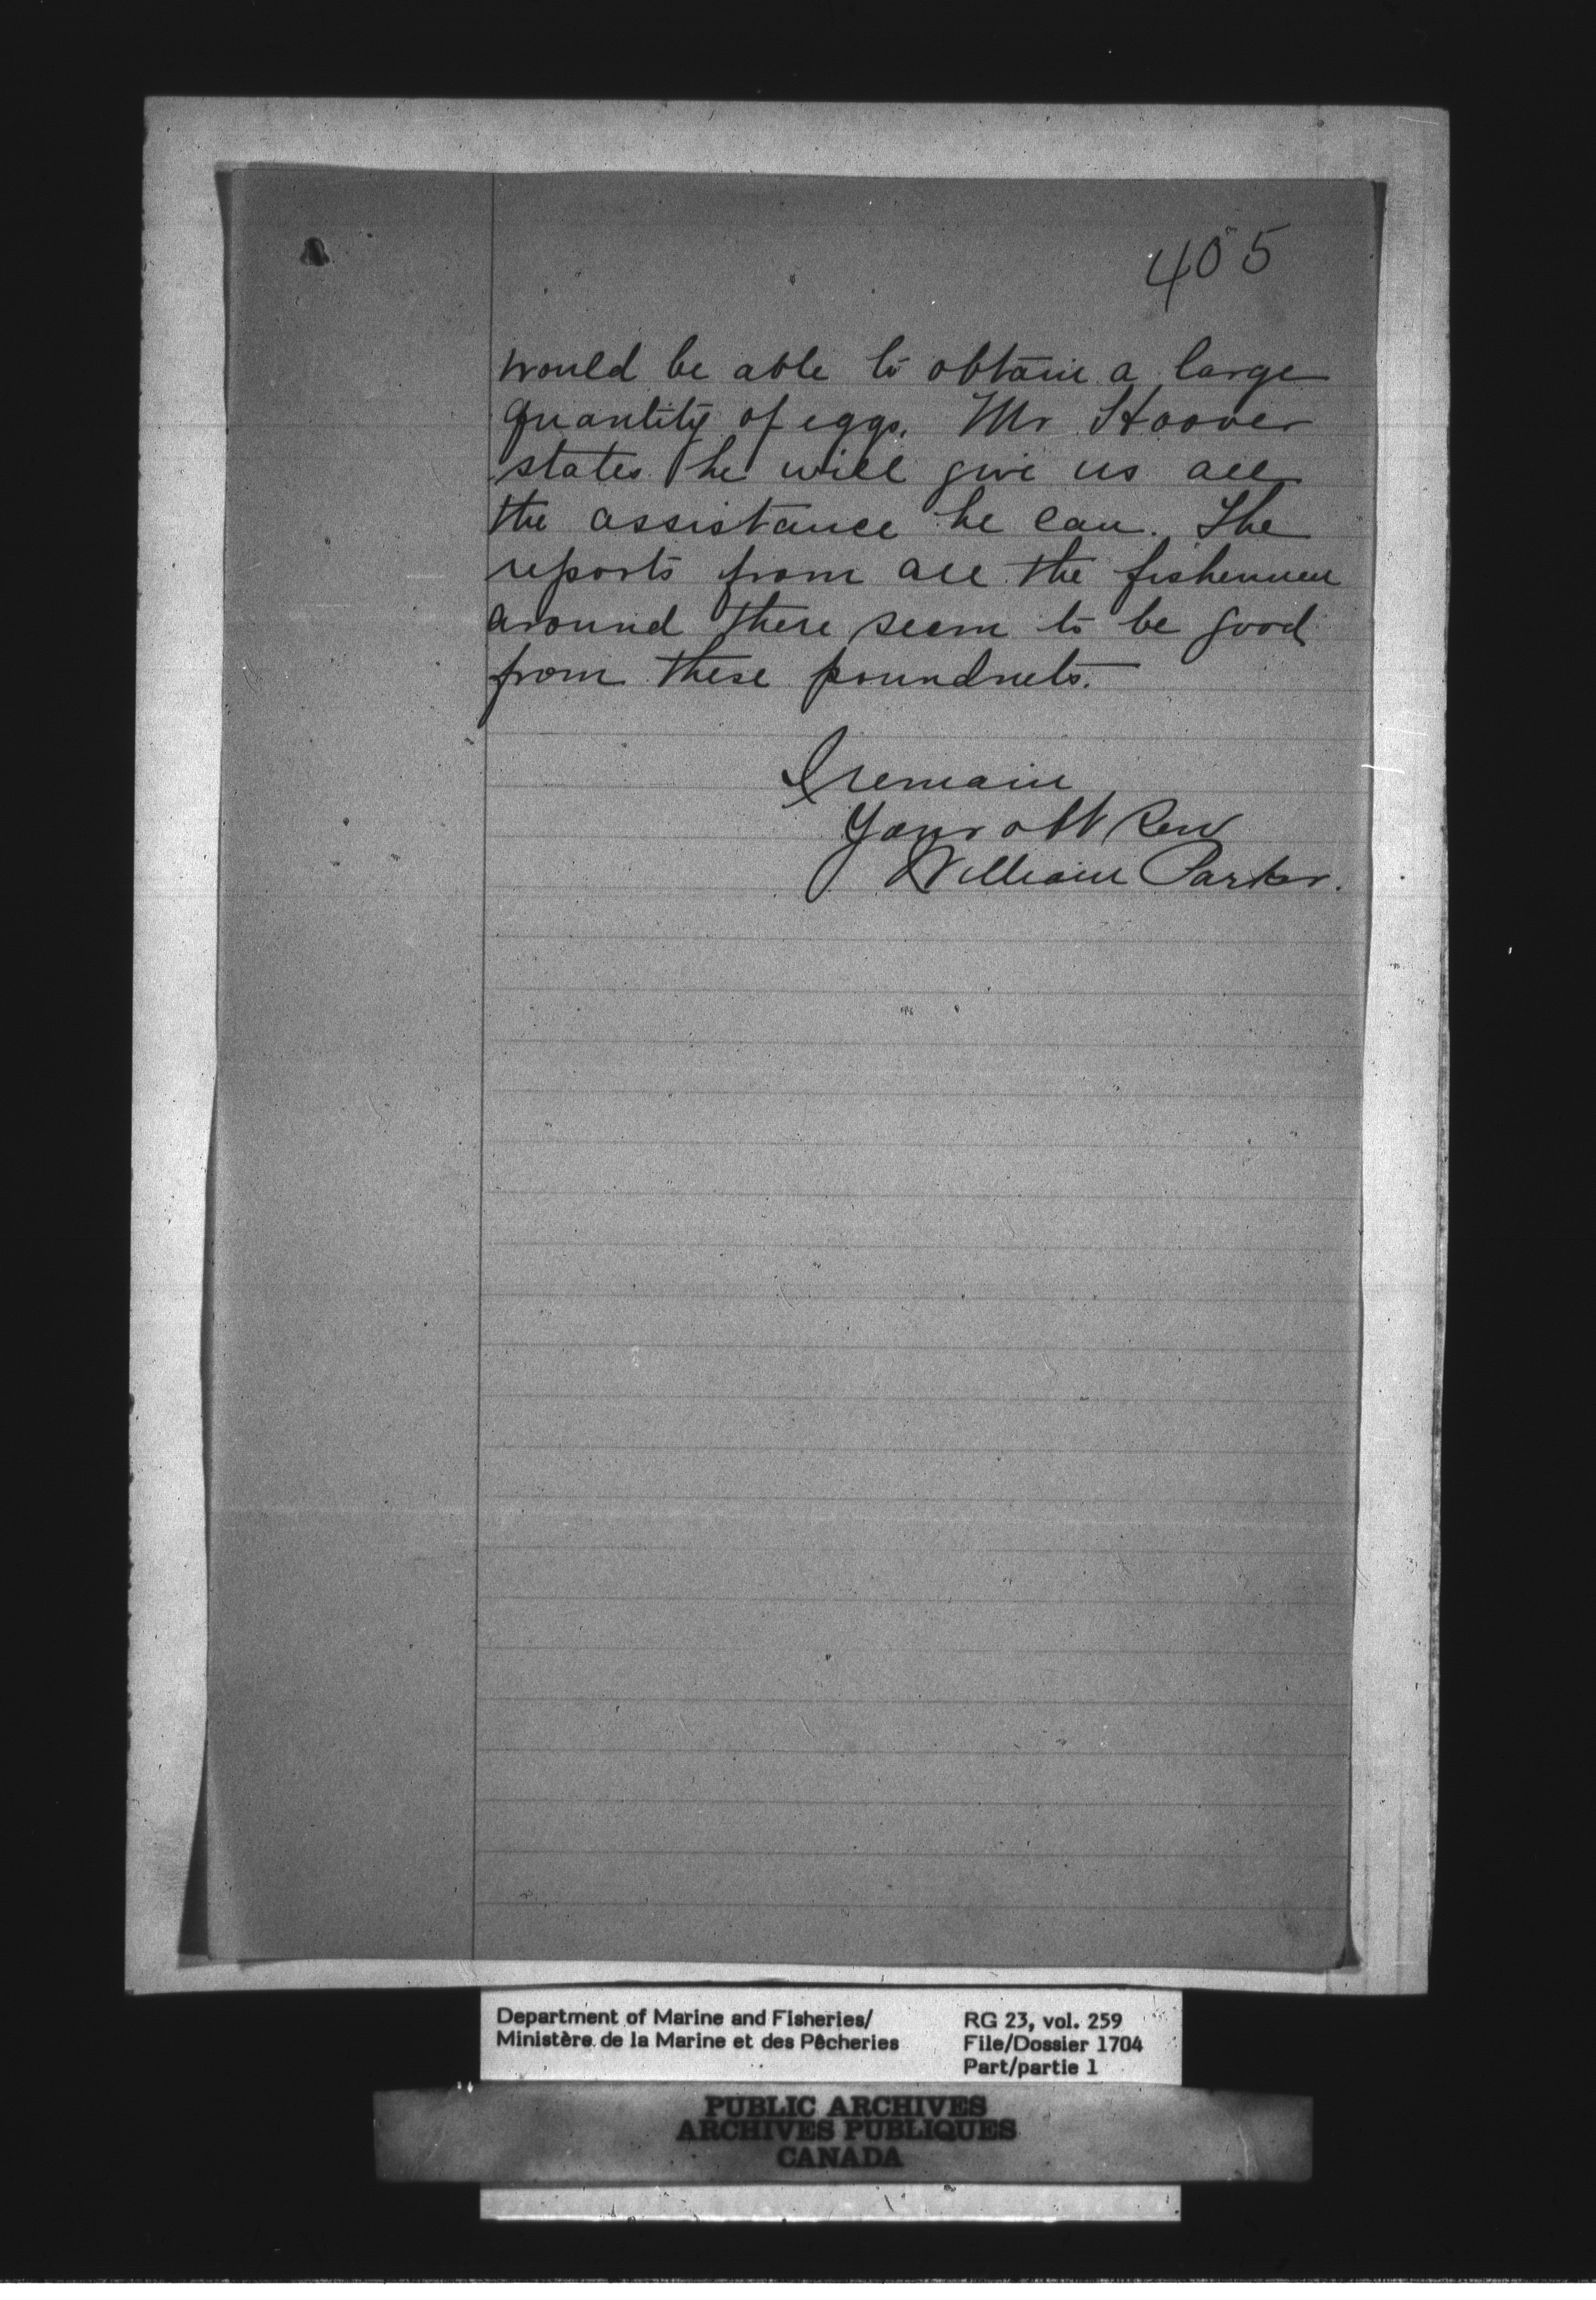 405
would be able to obtain a large
quantity of eggs. Mr Hoover
states he will give us all
the assistance he can. The
reports from all the fishermen
around there seem to be good
from these poundnets.
I remain
Your obt Serv
William Parker.
Department of Marine and Fisheries/
Ministère de la Marine et des Pêcheries
RG 23, vol. 259
File/Dossier 1704
Part/partie 1
PUBLIC ARCHIVES
ARCHIVES PUBLIQUES
CANADA